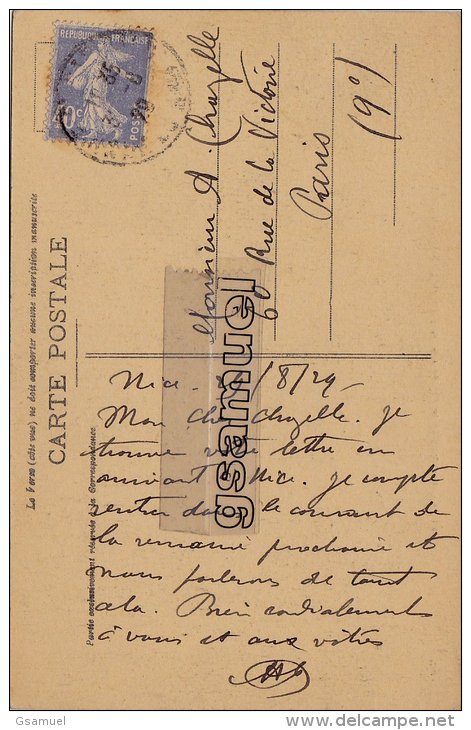 RÉPUBLIQUE FRANÇAISE
40c
POSTES
Le Verso (côté vue) ne doit comporter aucune inscription manuscrite
CARTE POSTALE
Partie exclusivement réservée à la Correspondance
Monsieur A. Chazelle
69 Rue de la Victoire
Paris
(9e)
gsamuel
Nice. /8/29
Mon cher Chazelle. Je
trouve votre lettre en
arrivant à Nice. Je compte
rentrer dans le courant de
la semaine prochaine et
nous parlerons de tout
cela. Bien cordialement
à vous et aux vôtres
Gsamuel
www.delcampe.net